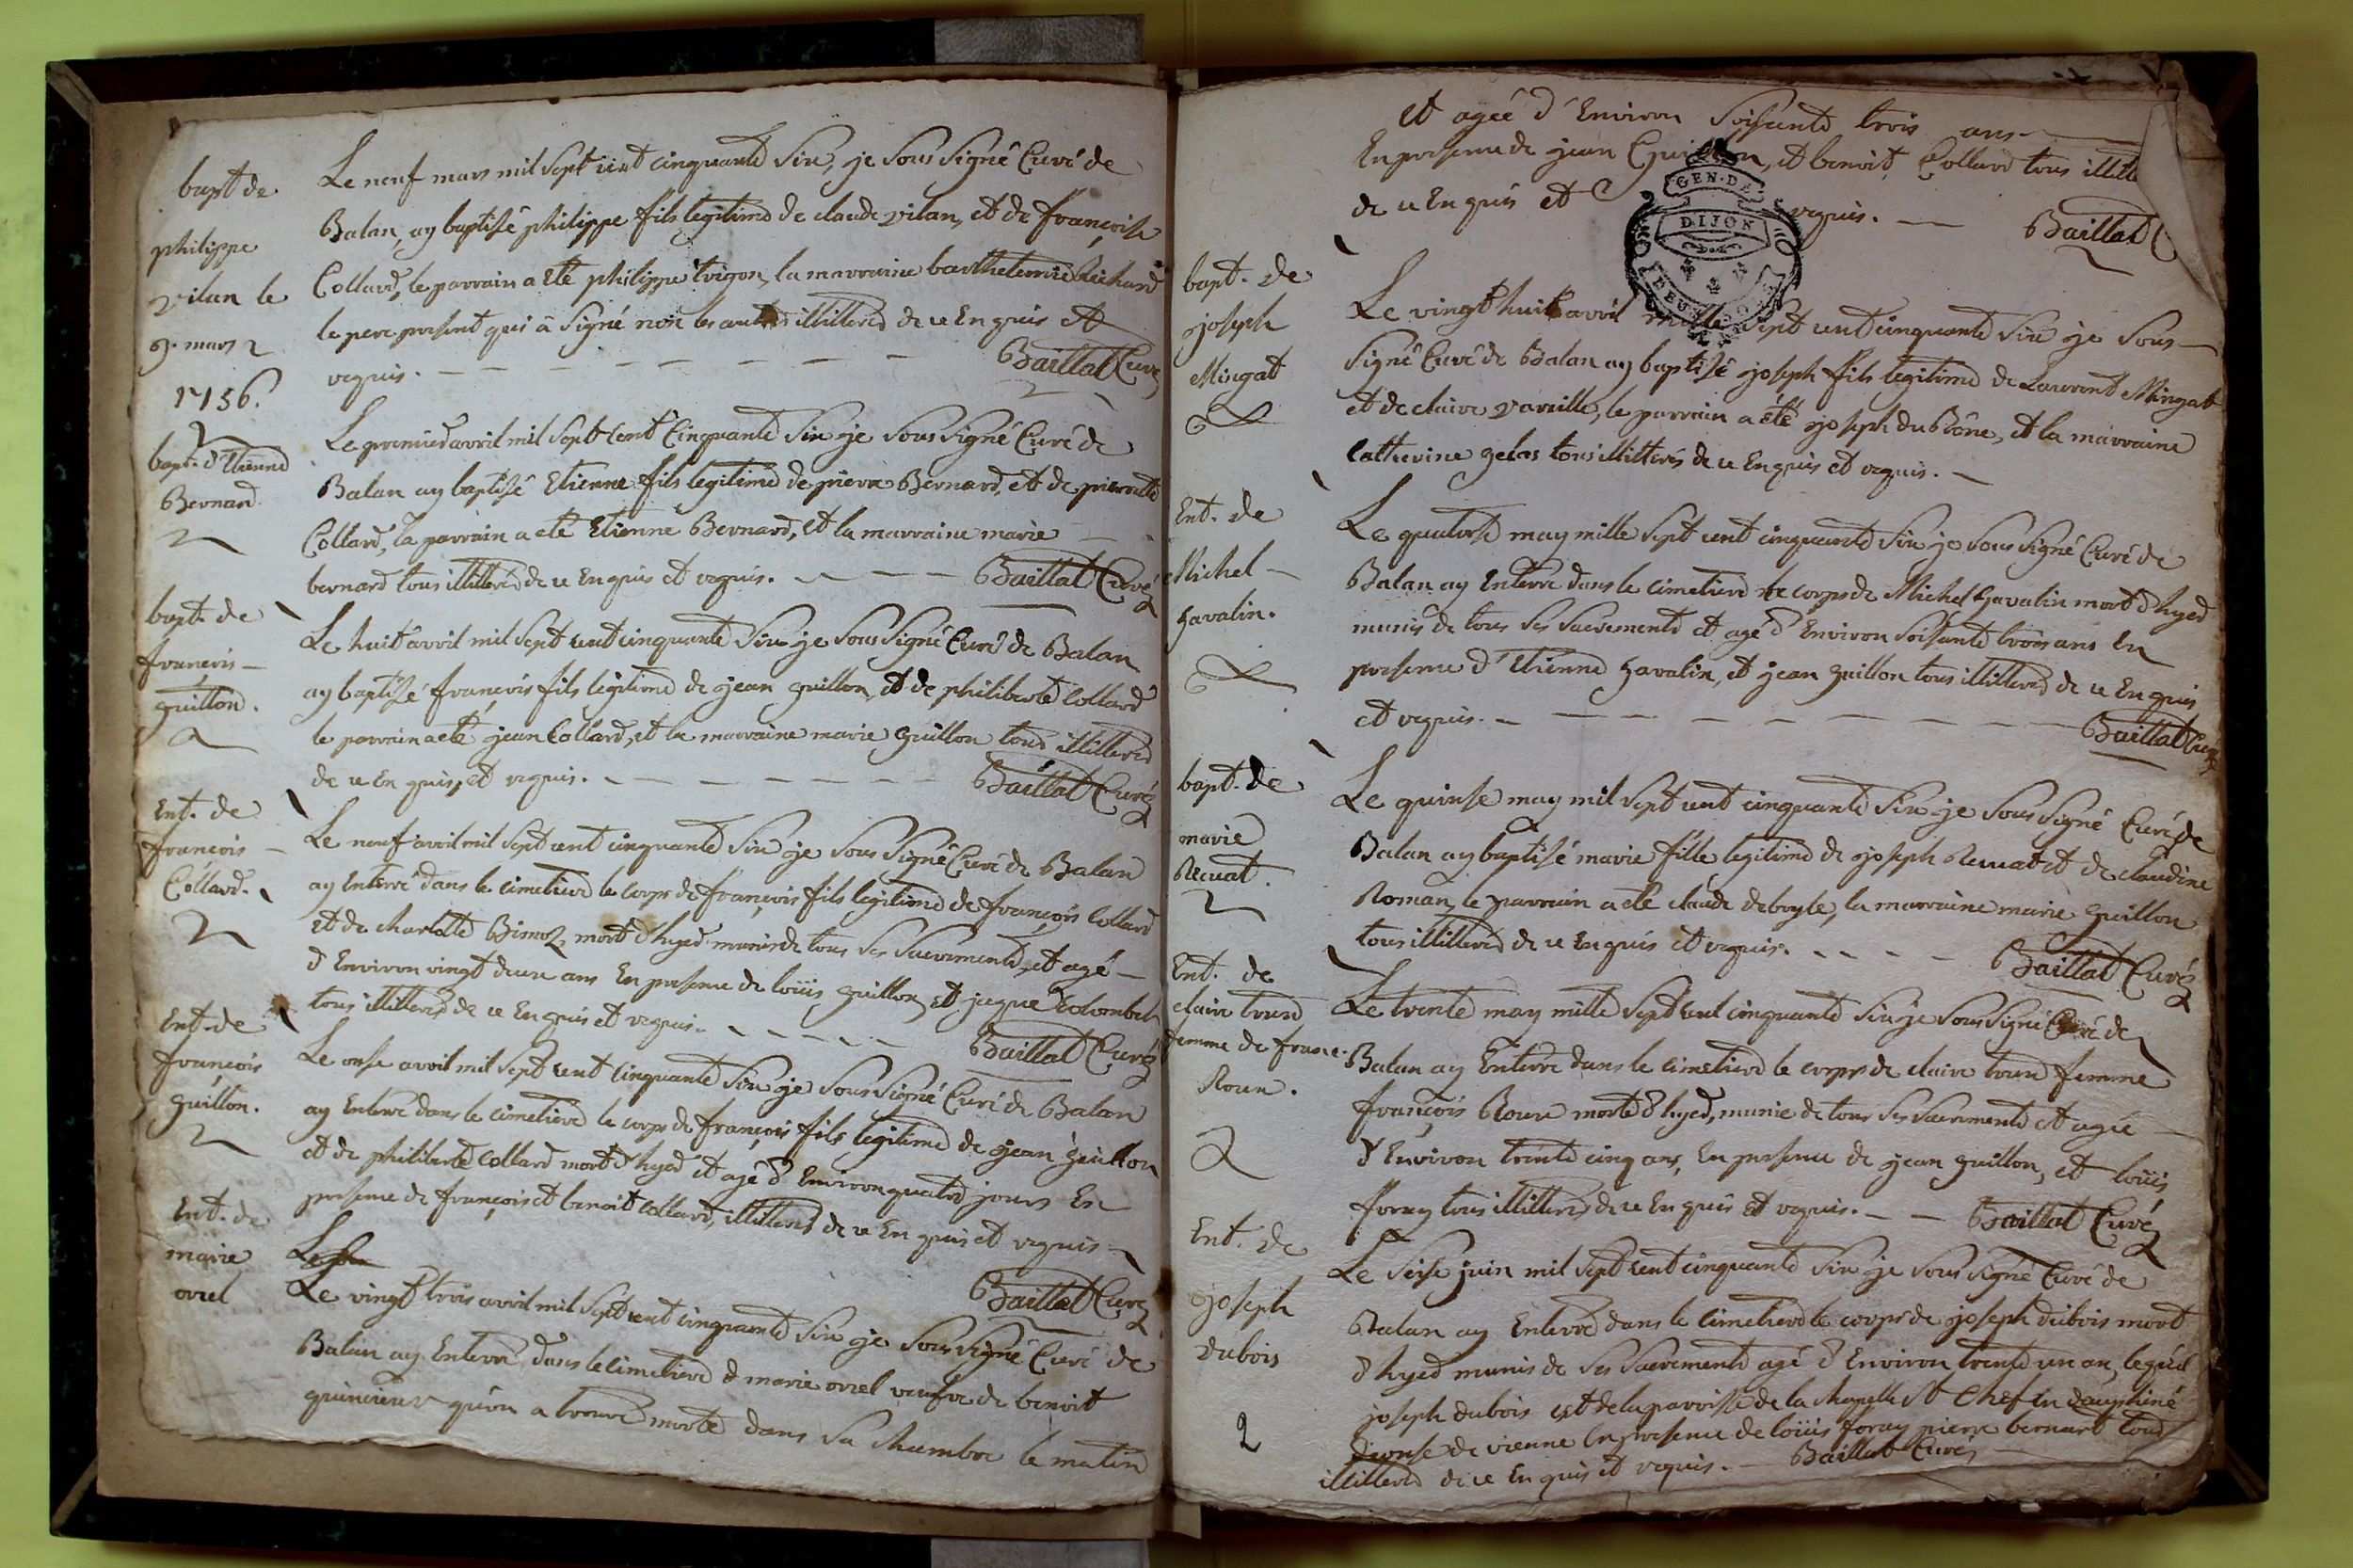 bapt de
philippe
vilan le
9. mars
1756.
Le neuf mars mil sept cent cinquante six, je sous signé Curé de
Balan, ay baptisé philippe fils legitime de claude vilan, et de françoise
Collard, le parrain a eté philippe trigon, la marraine barthelemie Richard
le pere present qui a signé non les autres illitteres de ce Enquis et
requis. Baillat Curé
bapt. d'Etienne
Bernard
Le premier avril mil sept cent Cinquante six je sous signé Curé de
Balan ay baptisé Etienne fils legitime de pierre Bernard, et de pierrette
Collard, la parrain a eté Etienne Bernard, et la marraine marie
bernard tous illitteres de ce Enquis et requis. Baillat Curé
bapt. de
françois
guillon.
Le huit avril mil sept cent cinquante six je sous signé Curé de Balan
ay baptisé françois fils legitime de jean guillon, et de philiberte Collard
le parrain a eté jean Collard, et la marraine marie guillon tous illitteres
de ce Enquis, et requis. Baillat Curé
Ent. de
françois
Collard.
Le neuf avril mil sept cent cinquante six je sous signé Curé de Balan
ay Enterré dans le cimetiere le corps de françois fils legitime de françois Collard
et de charlotte mort d'hyed munis de tous ses sacrements, et agé
d'Environ vingt deux ans En presence de loüis guillon, et jaque Colombet
tous illitteres de ce Enquis et requis. Baillat Curé
Ent. de
françois
guillon.
Le onse avril mil sept cent cinquante six je sous signé Curé de Balan
ay Enterré dans le cimetiere le corps de françois fils legitime de jean guillon
et de philiberte Collard mort d'hyed et agé d'Environ quatre jours En
presence de françois et benoit Collard, illitteres de ce Enquis et requis
Baillat Curé
Ent. de
marie
orsel
Le vingt trois avril mil sept cent cinquante six je sous signé Curé de
Balan ay Enterré dans le cimetiere marie orsel veufve de benoit
quincieux qu'on a trouvé morte dans sa chambre le matin
et agée d'Environ soisante trois ans
En presence de jean et benoit Collard tous
de ce Enquis et requis. Baillat
GEN. DE
DIJON
bapt. de
joseph
Mingat
Le vingt huit avril mille sept cent cinquante six je sous
signé Curé de Balan ay baptisé joseph fils legitime de Laurent Mingat
et de claire vareille, le parrain a eté joseph du Rône, et la marraine
Catherine gelas tous illitteres de ce Enquis et requis.
Ent. de
Michel
Gavalin.
Le quatorse may mille sept cent cinquante six je sous signé Curé de
Balan ay Enterré dans le cimetiere le corps de Michel Gavalin mort d'hyed
munis de tous ses sacrements et agé d'Environ soisante trois ans En
presence d'Etienne Gavalin, et jean guillon tous illitteres de ce Enquis
et requis. Baillat Curé
bapt. de
marie
Recuat.
Le quinse may mil sept cent cinquante six je sous signé Curé de
Balan ay baptisé marie fille legitime de joseph Recuat et de claudine
Roman, le parrain a eté claude deboyle, la marraine marie guillon
tous illitteres de ce Enquis et requis. Baillat Curé
Ent. de
claire
femme de
Roux.
Le trente may mille sept cent cinquante six je sous signé Curé de
Balan ay Enterré dans le cimetiere le corps de claire femme
françois Roux morte d'hyed, munie de tous ses sacrements et agée
d'Environ trente cinq ans, En presence de jean guillon, et loüis
foray tous illitteres de ce Enquis et requis. Baillat Curé
Ent. de
joseph
dubois
Le seise juin mil sept cent cinquante six je sous signé Curé de
Balan ay Enterré dans le cimetiere le corps de joseph dubois mort
d'hyed munis de ses sacrements agé d'Environ trente un an, lequel
joseph dubois est de la paroisse de la chapelle St Chef En dauphiné
de vienne En presence de loüis foray pierre bernard tous
illitteres de ce Enquis et requis. Baillat Curé
2